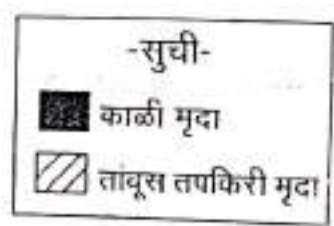 -सुची-
काळी मृदा
तांवूस तपकिरी मृदा